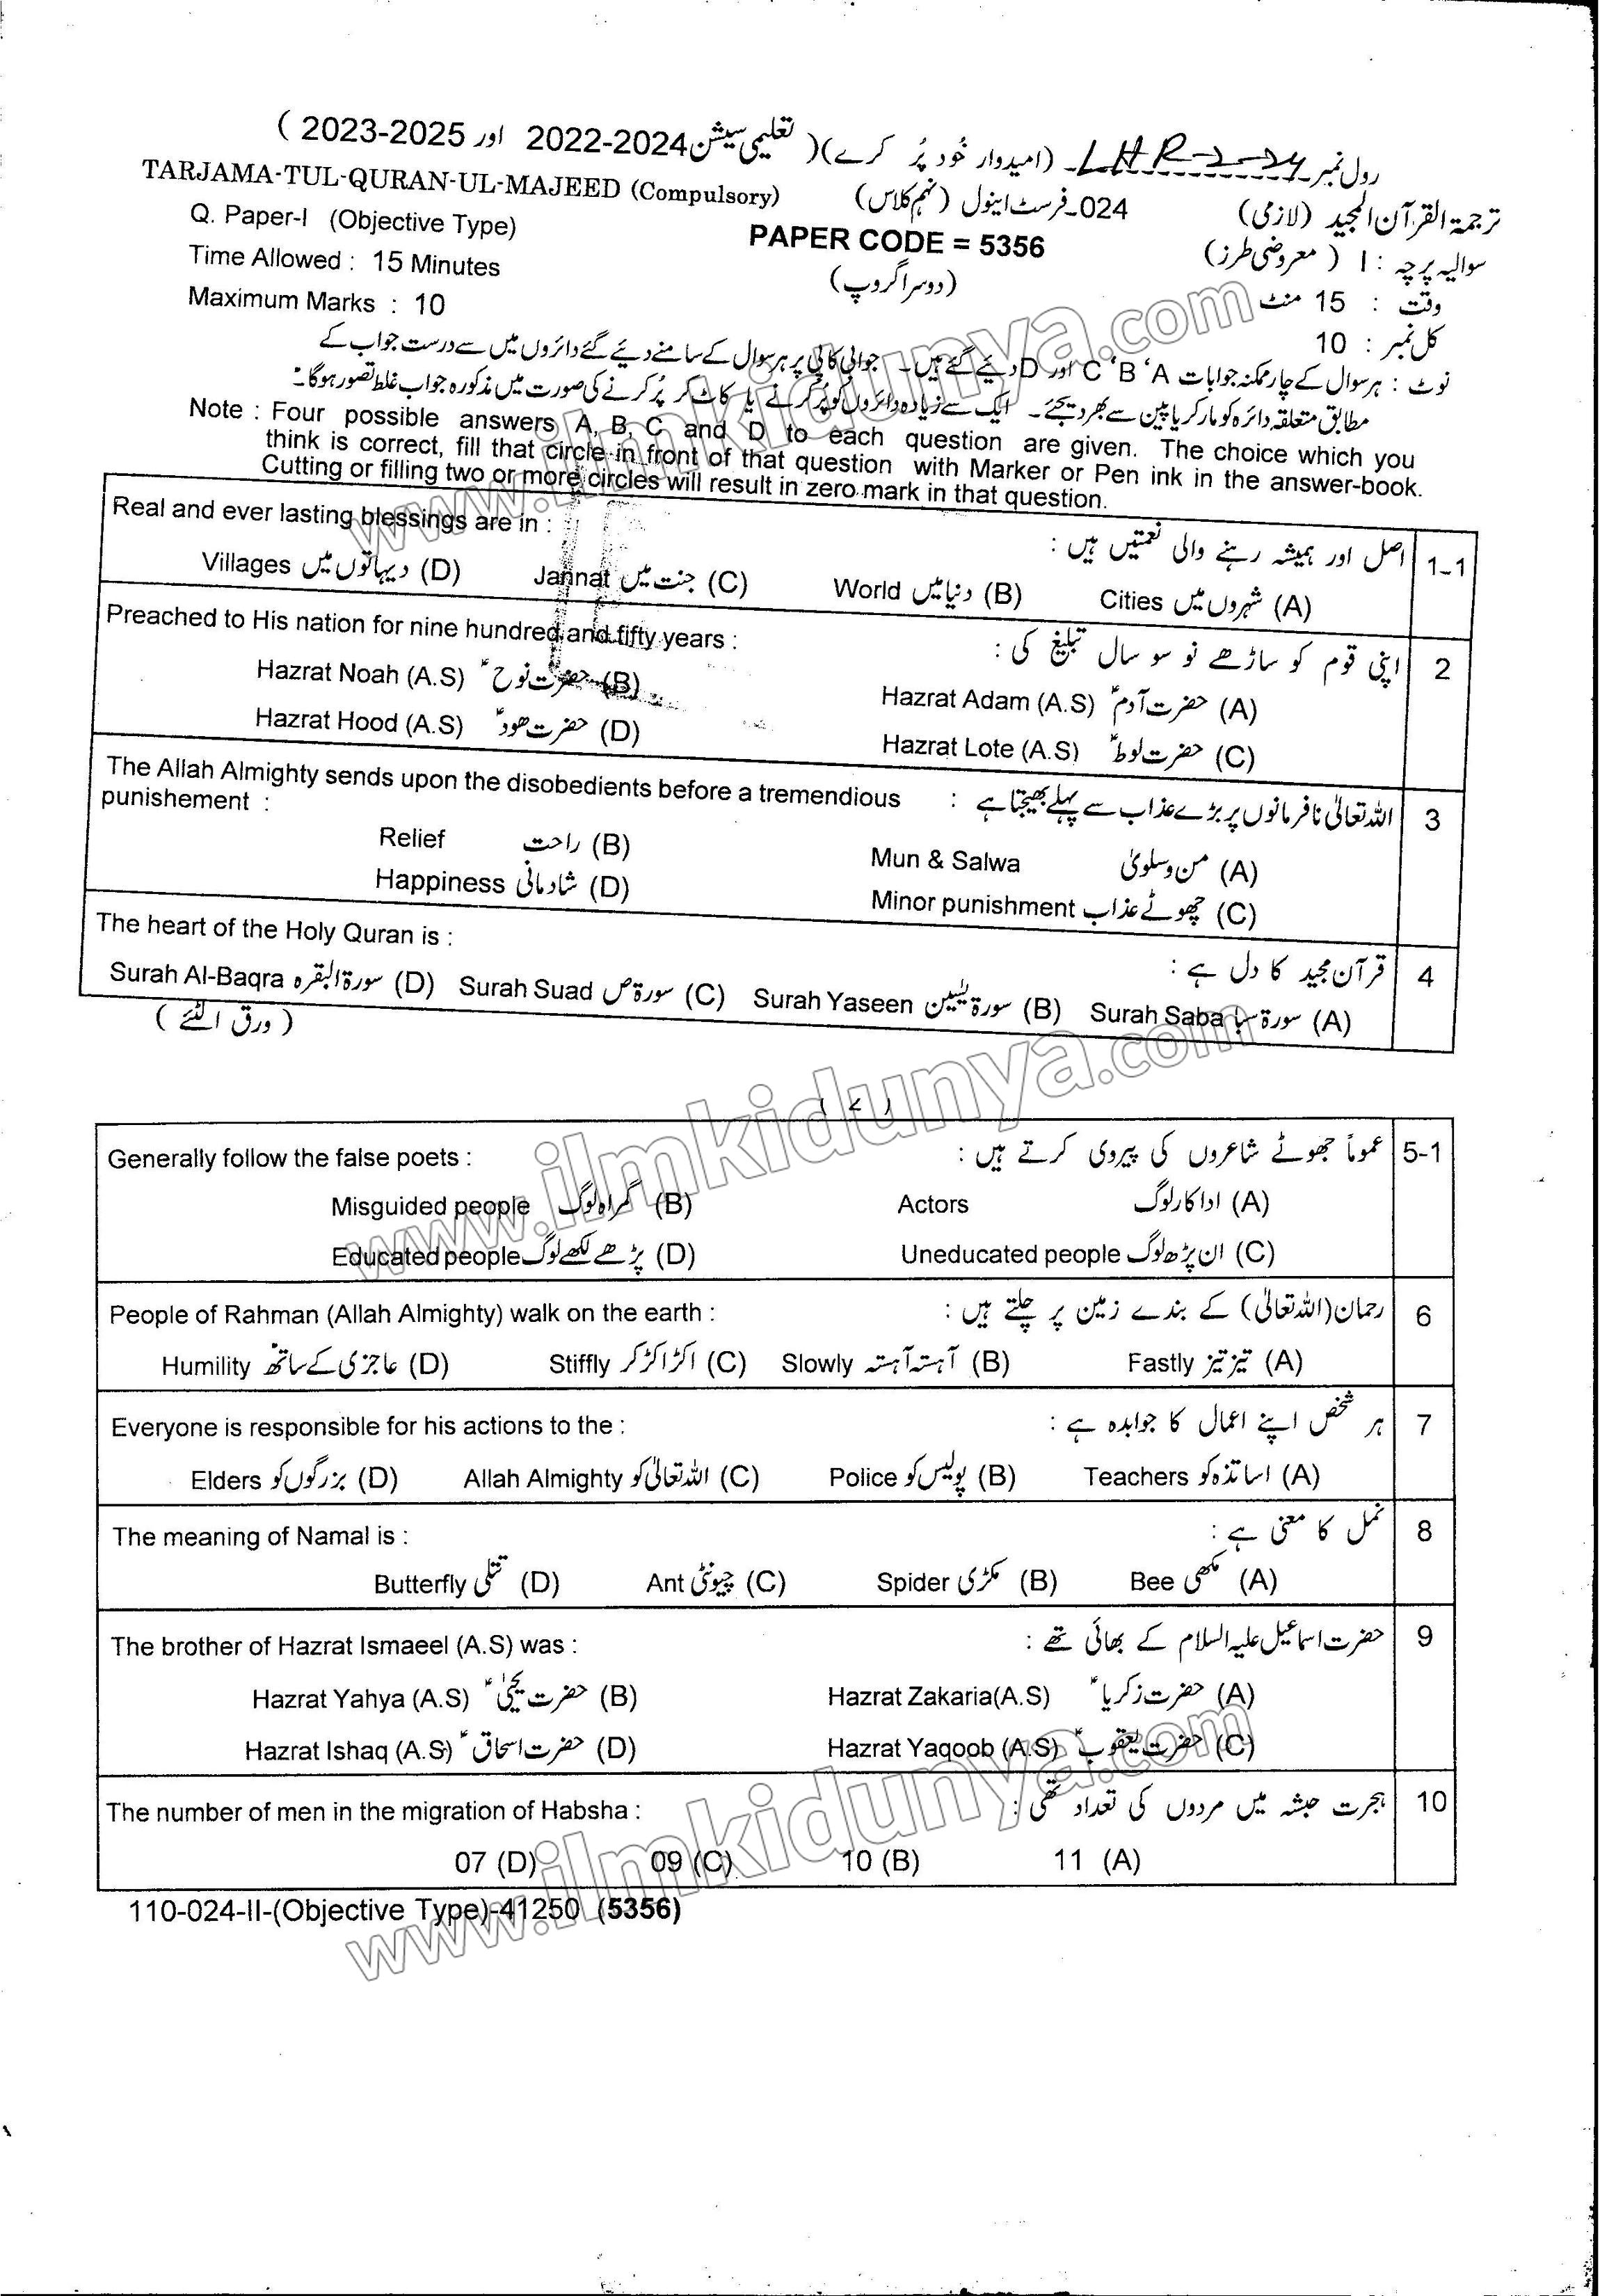 رول نمبر LHR-2-24 (امیدوار خُود پُر کرے) (تعلیمی سیشن 2022-2024 اور 2023-2025)
TARJAMA-TUL-QURAN-UL-MAJEED (Compulsory) 024-فرسٹ اینول (نہم کلاس) ترجمۃ القرآن المجید (لازمی)
Q. Paper-I (Objective Type) PAPER CODE = 5356 سوالیہ پرچہ : I (معروضی طرز)
Time Allowed : 15 Minutes (دوسرا گروپ) وقت : 15 منٹ
Maximum Marks : 10 کل نمبر : 10
نوٹ : ہر سوال کے چار ممکنہ جوابات A ‘B ‘C اور D دئیے گئے ہیں۔ جوابی کاپی پر ہر سوال کے سامنے دئیے گئے دائروں میں سے درست جواب کے
مطابق متعلقہ دائرہ کو مارکر یا پین سے بھر دیجئے۔ ایک سے زیادہ دائروں کو پُر کرنے یا کاٹ کر پُر کرنے کی صورت میں مذکورہ جواب غلط تصور ہوگا۔
Note : Four possible answers A, B, C and D to each question are given. The choice which you
think is correct, fill that circle in front of that question with Marker or Pen ink in the answer-book.
Cutting or filling two or more circles will result in zero mark in that question.
Real and ever lasting blessings are in : اصل اور ہمیشہ رہنے والی نعمتیں ہیں : 1-1
Villages دیہاتوں میں (D) Jannat جنت میں (C) World دنیا میں (B) Cities شہروں میں (A)
Preached to His nation for nine hundred and fifty years : اپنی قوم کو ساڑھے نو سو سال تبلیغ کی : 2
Hazrat Noah (A.S) حضرت نوحؑ (B) Hazrat Adam (A.S) حضرت آدمؑ (A)
Hazrat Hood (A.S) حضرت ھودؑ (D) Hazrat Lote (A.S) حضرت لوطؑ (C)
The Allah Almighty sends upon the disobedients before a tremendious اللہ تعالیٰ نافرمانوں پر بڑے عذاب سے پہلے بھیجتا ہے : 3
punishement :
Relief راحت (B) Mun & Salwa من وسلویٰ (A)
Happiness شادمانی (D) Minor punishment چھوٹے عذاب (C)
The heart of the Holy Quran is : قرآن مجید کا دل ہے : 4
Surah Al-Baqra سورۃ البقرہ (D) Surah Suad سورۃ ص (C) Surah Yaseen سورۃ یٰسین (B) Surah Saba سورۃ سبا (A)
(ورق الٹئے)
Generally follow the false poets : عموماً جھوٹے شاعروں کی پیروی کرتے ہیں : 5-1
Misguided people گمراہ لوگ (B) Actors اداکار لوگ (A)
Educated people پڑھے لکھے لوگ (D) Uneducated people ان پڑھ لوگ (C)
People of Rahman (Allah Almighty) walk on the earth : رحمان (اللہ تعالیٰ) کے بندے زمین پر چلتے ہیں : 6
Humility عاجزی کے ساتھ (D) Stiffly اکڑ اکڑ کر (C) Slowly آہستہ آہستہ (B) Fastly تیز تیز (A)
Everyone is responsible for his actions to the : ہر شخص اپنے اعمال کا جوابدہ ہے : 7
Elders بزرگوں کو (D) Allah Almighty اللہ تعالیٰ کو (C) Police پولیس کو (B) Teachers اساتذہ کو (A)
The meaning of Namal is : نمل کا معنی ہے : 8
Butterfly تتلی (D) Ant چیونٹی (C) Spider مکڑی (B) Bee مکھی (A)
The brother of Hazrat Ismaeel (A.S) was : حضرت اسماعیل علیہ السلام کے بھائی تھے : 9
Hazrat Yahya (A.S) حضرت یحییٰؑ (B) Hazrat Zakaria(A.S) حضرت زکریاؑ (A)
Hazrat Ishaq (A.S) حضرت اسحاقؑ (D) Hazrat Yaqoob (A.S) حضرت یعقوبؑ (C)
The number of men in the migration of Habsha : ہجرت حبشہ میں مردوں کی تعداد تھی : 10
07 (D) 09 (C) 10 (B) 11 (A)
110-024-II-(Objective Type)-41250 (5356)
www.ilmkidunya.com
www.ilmkidunya.com
www.ilmkidunya.com